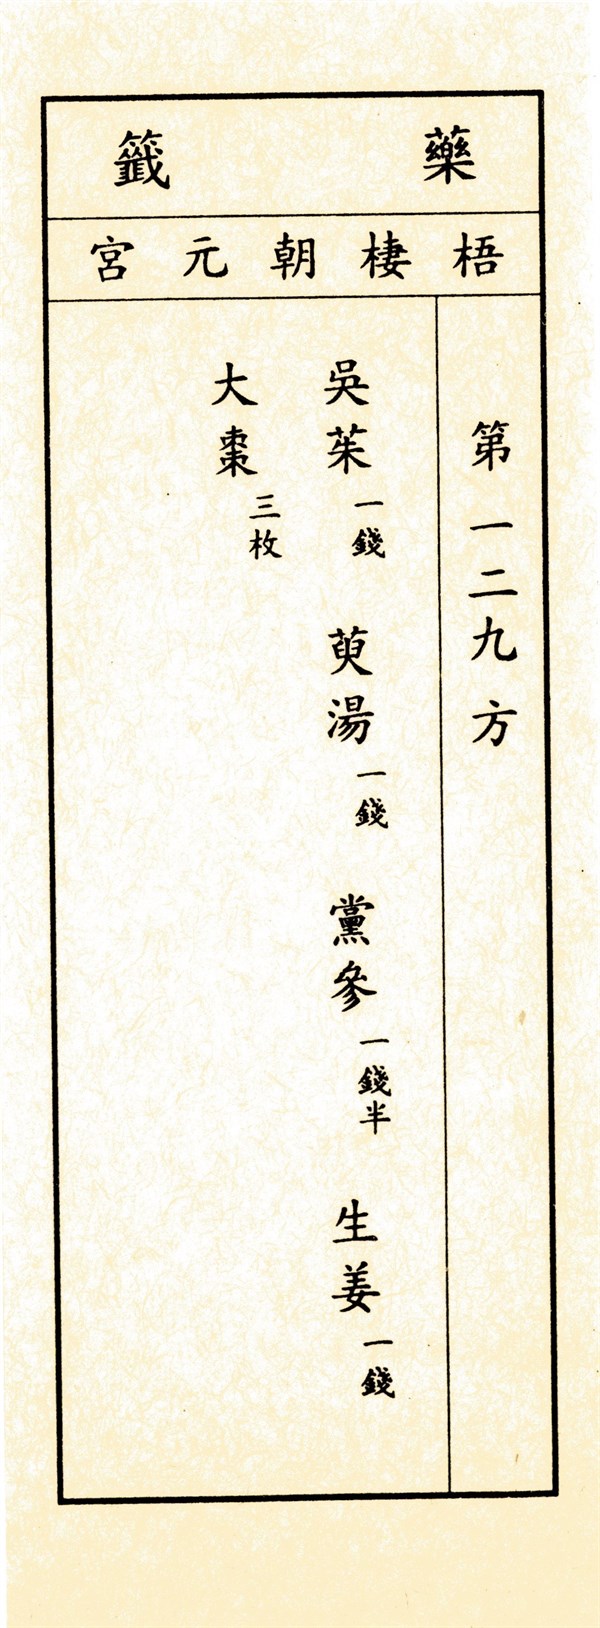 藥籤
梧棲朝元宮
第一二九方
吳茱一錢 萸湯一錢 黨參一錢半 生姜一錢
大棗三枚